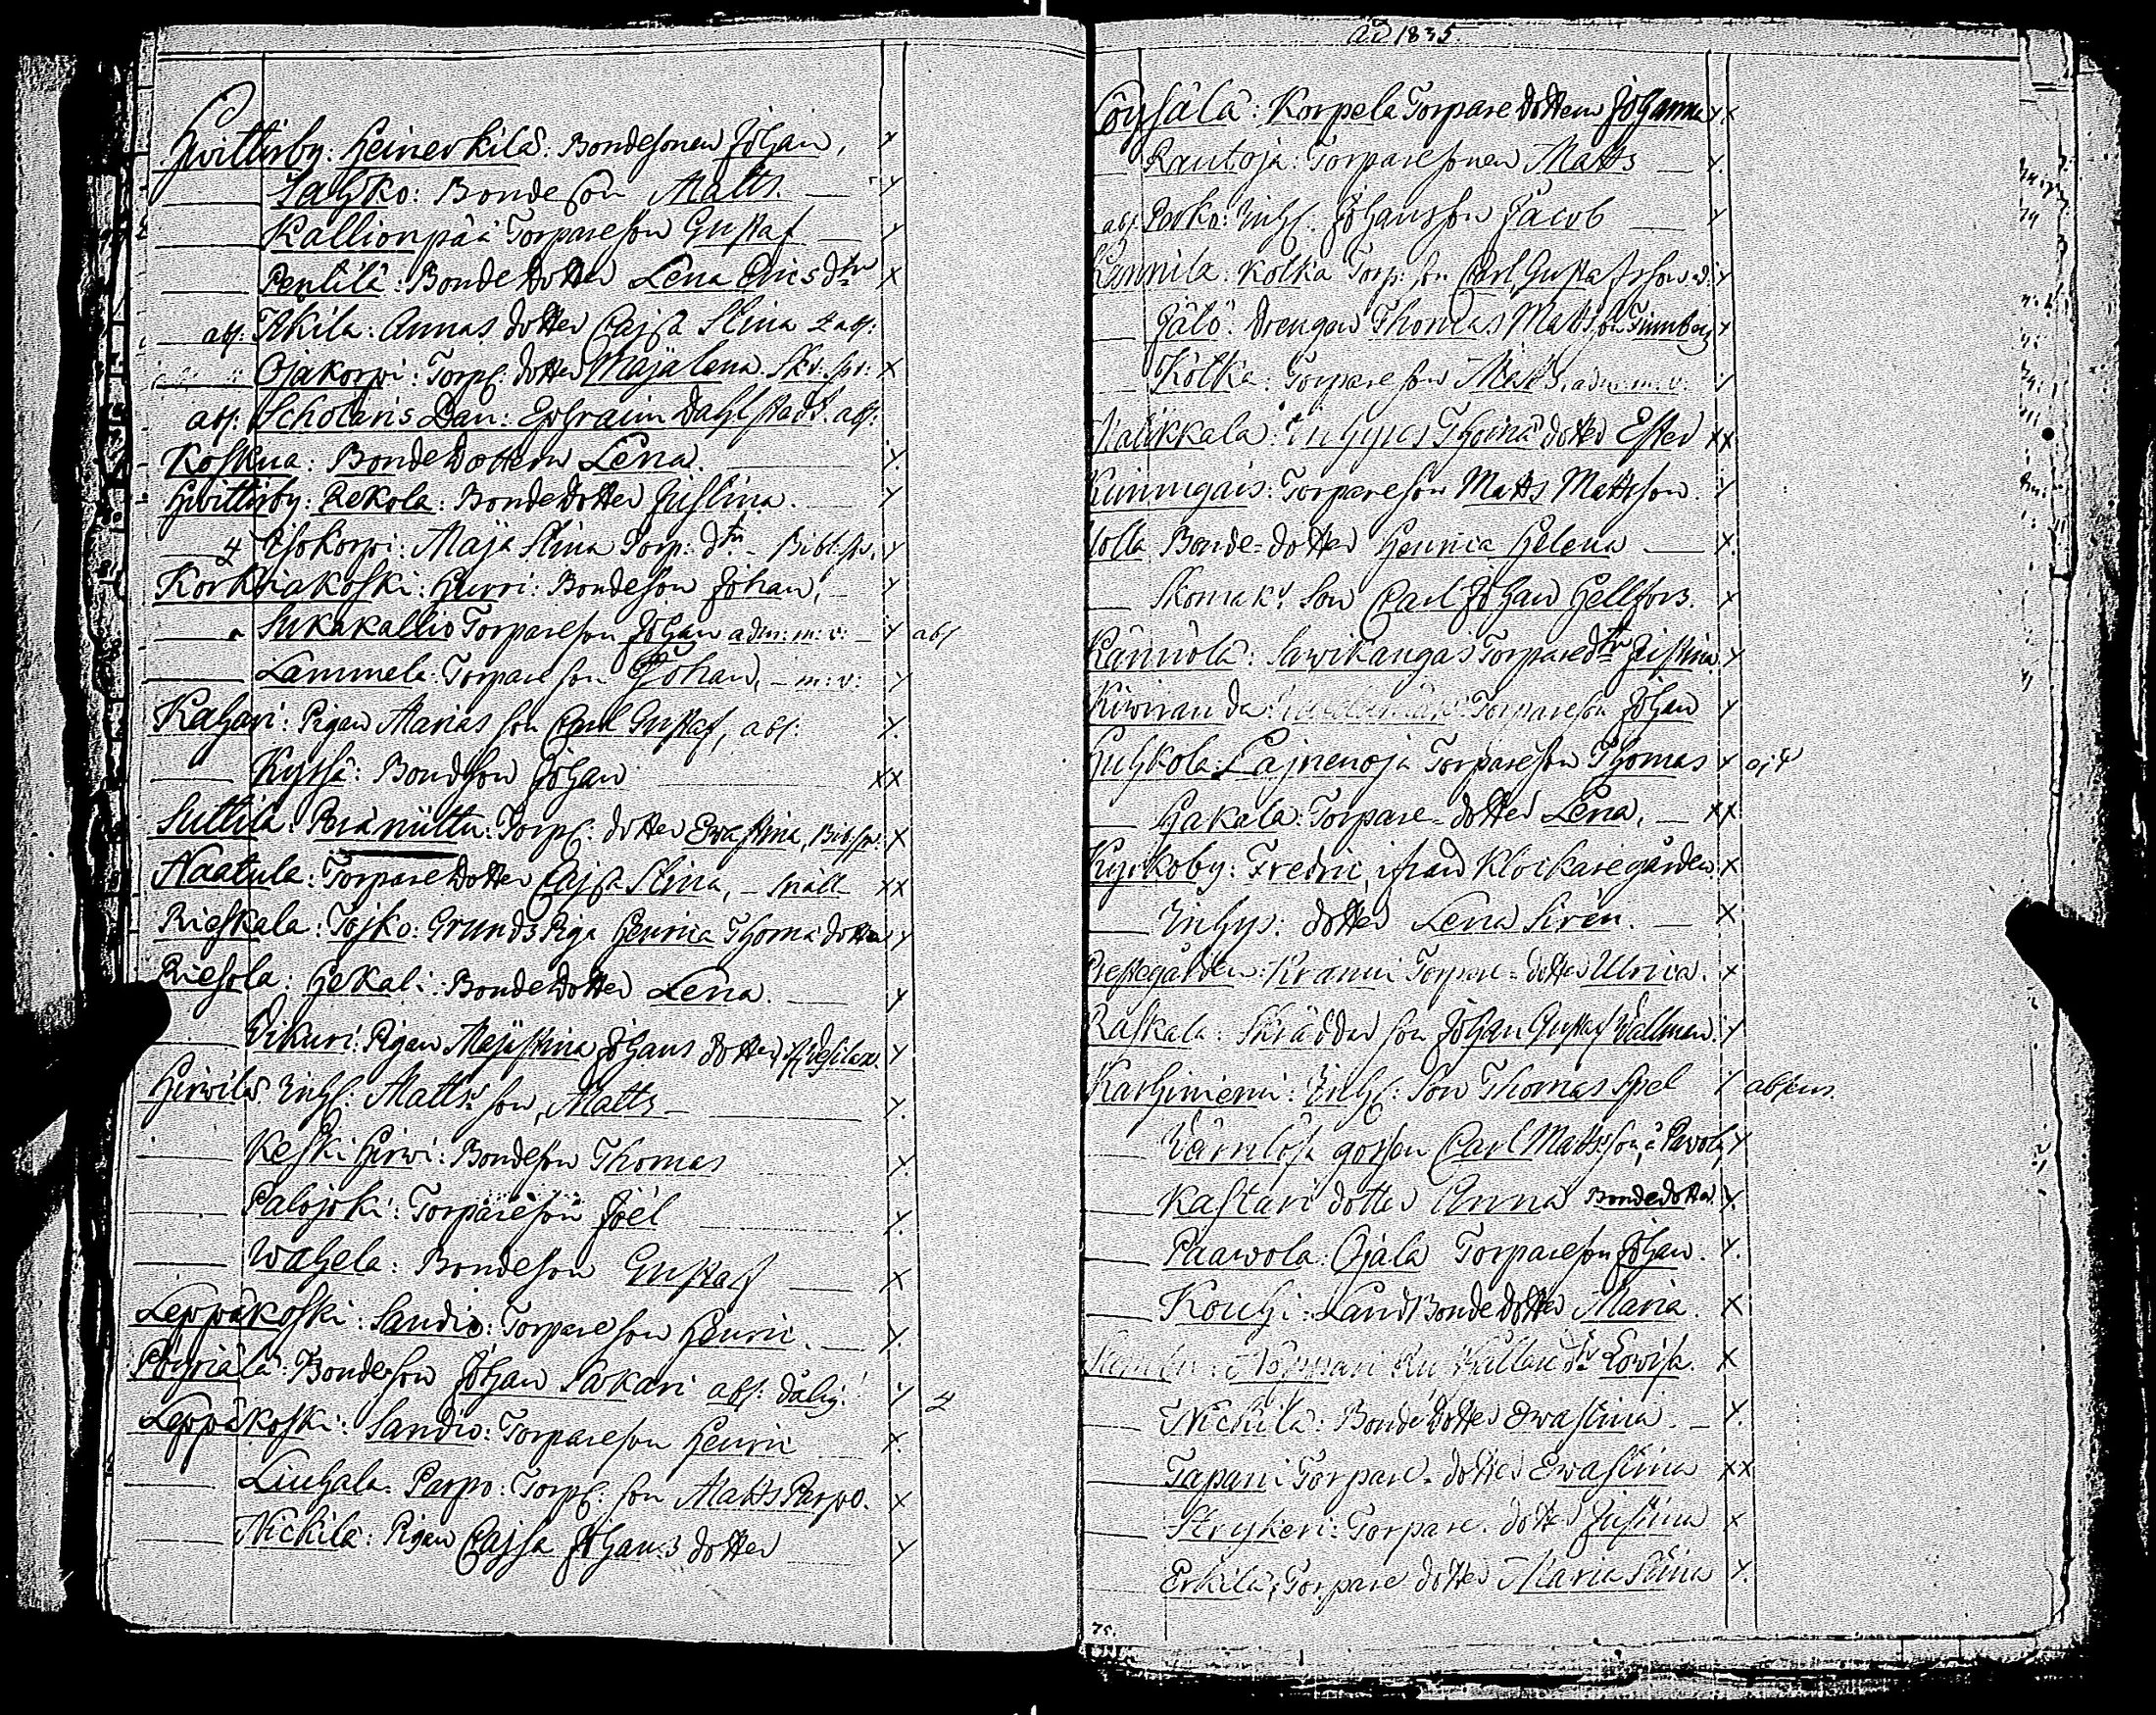 Hvittisby: Heinevkilä: Bondesonen Johan, x
Sahko: Bonde son Matts. x
Kallionpää Torpareson Gustaf x
Pentilä: Bonde dotter Lena Erics dtr x
abs: Itkila: Annas dotter Cajsa Stina abs:
Ojakorpi: Torp: dotter Majalena. Sk: sp: x
abs: Scholaris Dan: Ephraim Dahlstedt. abs:
Koskua: Bondedottern Lena. x
Hvittisby: Rekola: Bondedotter Justina. x
4 Isokorpi: Maja Stina Torp: dtr - Bibl: sp. x
Korkiakoski: Hurri: Bondeson Johan, x
Sukakallio Torpareson Johan adm: m: v: x abs
Lammela: Torpareson Johan, - m: v: x
Kahari: Pigan Marias son Carl Gustaf, abs: x
Kyssä: Bondeson Johan xx
Suttila: Peräniittu: Torp: dotter Ewa Stina, Bib: sp: x
Naatula: Torparedotter Cajsa Stina, - snäll xx
Rieskala: Tojko: Grunds Piga Henrica Thomædotter x
Riesola: Hekali: Bondedotter Lena. x
Vikuri: Pigan Majastina Johans dotter x
Hirvilä Inhs: Matts son, Matts x
Keski Hirvi: Bondeson Thomas x
Palojoki: Torpareson Joël x
Wahela: Bondeson Gustaf x
Leppäkoski: Sandio: Torpareson Henric x
Pöyriälä: Bondeson Johan Sakari abs: dålig! x 4
Leppäkoski: Sandio: Torpareson Henric x
Liuhala: Parpo: Torp: son Matts Parpo. x
Nickilä: Pigan Cajsa Johans dotter x
Ao 1835.
Löysälä: Korpela Torpare dottern Johanna xx
Rautoja: Torparesonen Matts x
abs: Porko: Inhs: Johansson Jacob x
Kannila: Kolka Torp: son Carl Gustafsson x
Jälö: Drengen Thomas Mattsson Finnberg x
Kolka: Torpareson Matts, adm: m: v: x
Inhyses Thomæ dotter Ester xx
Kuningais: Torpareson Matts Mattsson x
Bonde-dotter Henrica Helena x
Skomak: son Carl Johan Hellfors. x
Kännölä: Savikangas Torparedtr Justina x
Torpareson Johan x
Huhkola: Lajnenoja Torpareson Thomas x
Hakala: Torpare-dotter Lena, xx
Kyrkoby: Fredric, ifrån Klockaregården x
Inhys: dotter Lena Siren. x
Prestegården: Kranni Torpare-dotter Ulrica. x
Raskala: Skräddar son Johan Gustaf Wallman x
Karhiniemi: Inhs: son Thomas Spel x absens.
Värnlösa gossen Carl Mattsson, x
Kastari dotter Anna Bondedotter x
Paavola: Ojala Torpareson Johan. x
Kouhi: Landbonde dotter Maria. x
Lovisa. x
Nickilä: Bonde dotter Ewastina. x
Tapani Torpare-dotter Ewastina xx
Strykeri: Torpare-dotter Justina x
Erkilä: Torpare dotter Maria Stina x